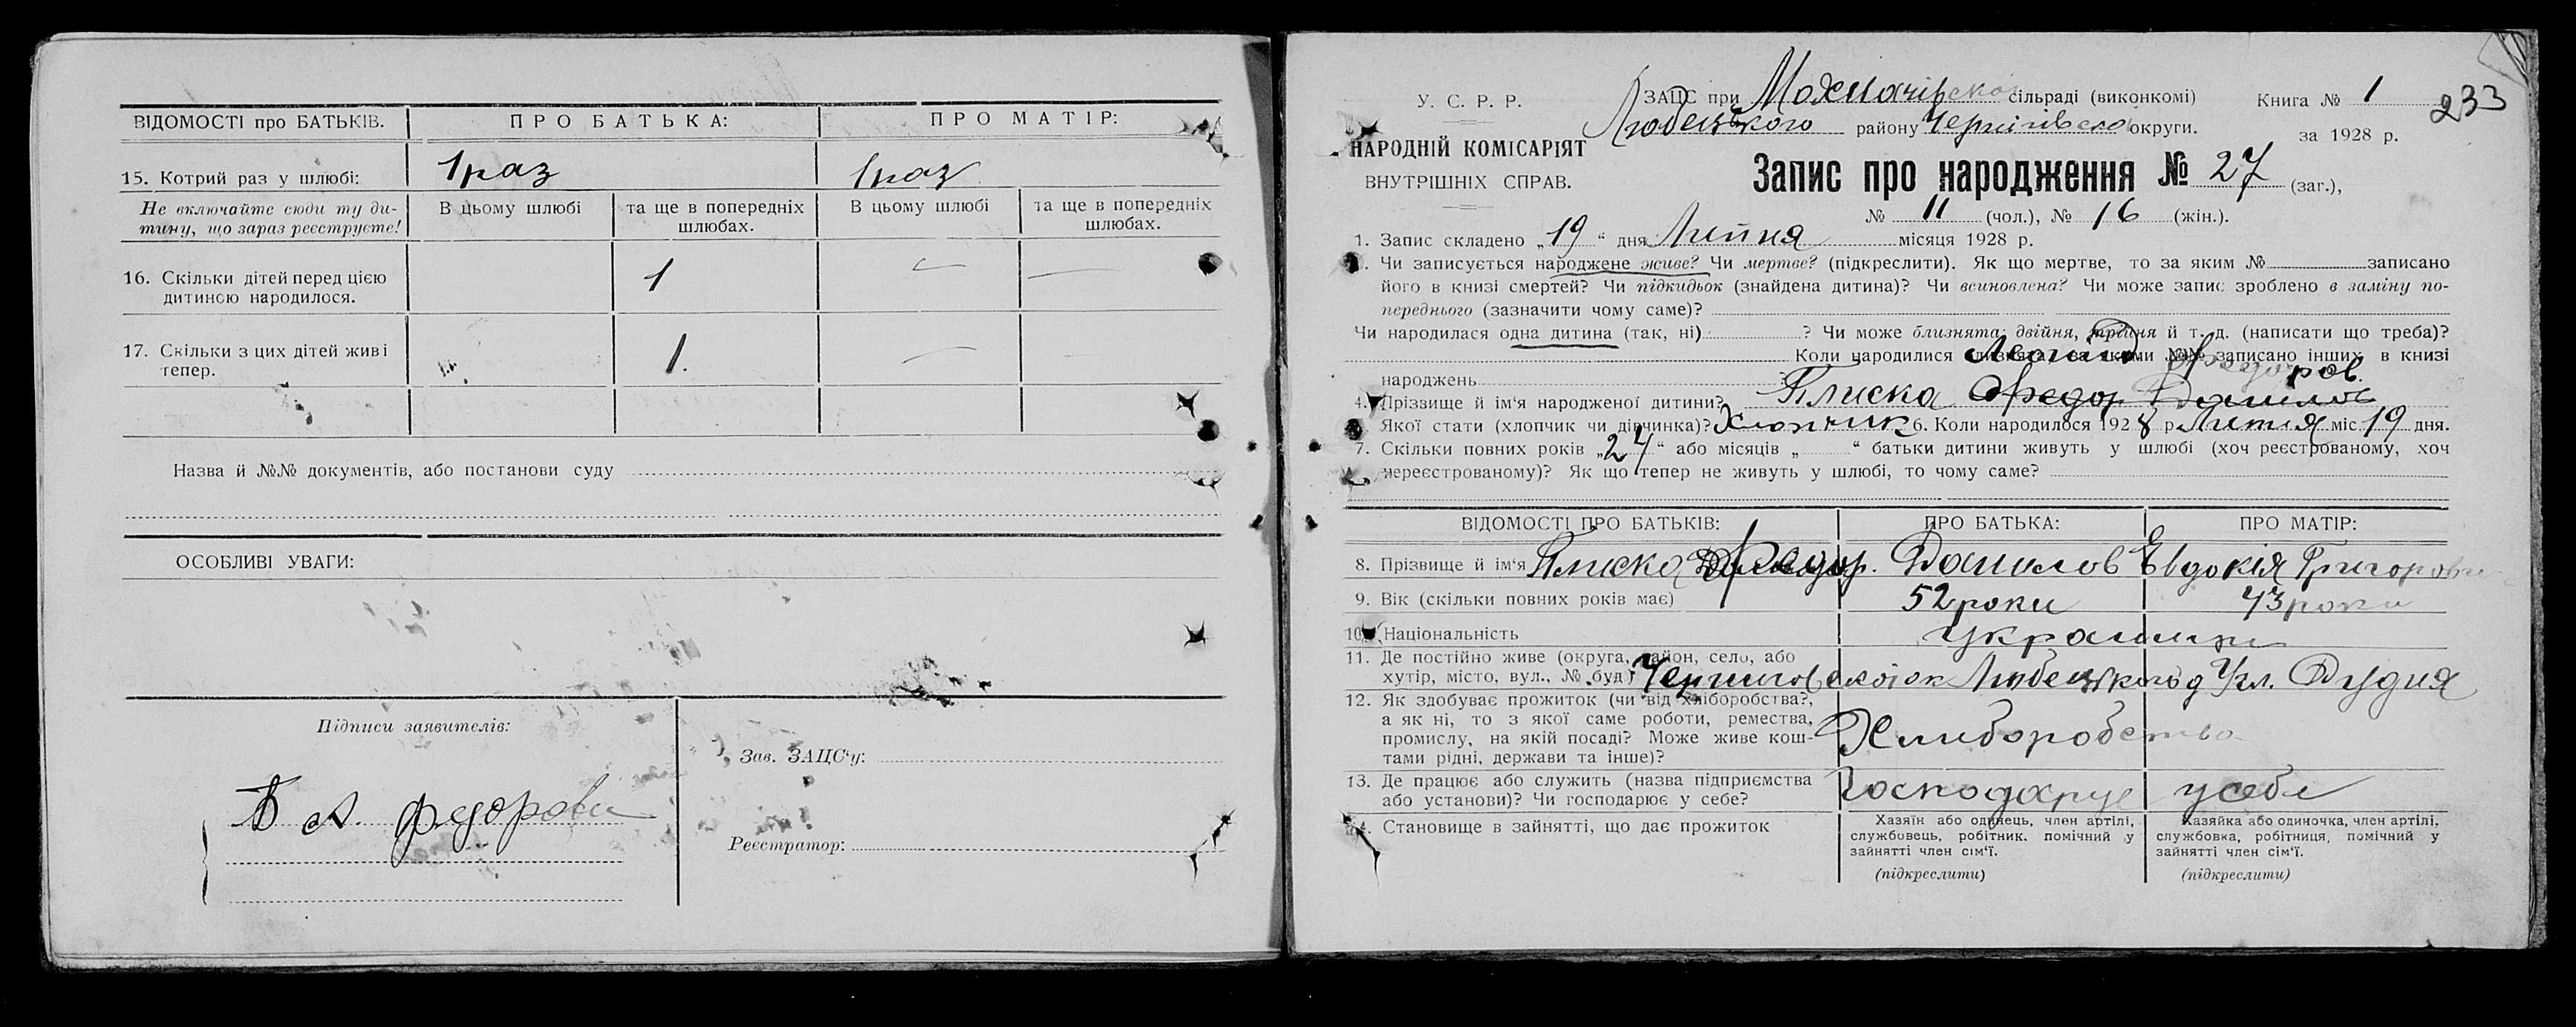 ВІДОМОСТІ про БАТЬКІВ. ПРО БАТЬКА: ПРО МАТІР:
15. Котрий раз у шлюбі: 1 раз 1 раз
Не включайте сюди ту ди- В цьому шлюбі та ще в попередніх В цьому шлюбі та ще в попередніх
тину, що зараз реєструєте! шлюбах. шлюбах.
16. Скільки дітей перед цією 1 — —
дитиною народилося.
17. Скільки з цих дітей живі 1. —
тепер.
Назва й №№ документів, або постанови суду
ОСОБЛИВІ УВАГИ:
Підписи заявителів:
Зав. ЗАЦС'у:
Реєстратор:
У. С. Р. Р.
НАРОДНІЙ КОМІСАРІЯТ
ВНУТРІШНІХ СПРАВ.
233
ЗАЦС при сільраді (виконкомі) Книга № 1
Любецького району Чернігівської округи. за 1928 р.
Запис про народження № 27 (заг.),
№ 11 (чол.), № 16 (жін.).
1. Запис складено „19“ дня Липня місяця 1928 р.
Чи записується народжене живе? Чи мертве? (підкреслити). Як що мертве, то за яким № записано
його в книзі смертей? Чи підкидьок (знайдена дитина)? Чи всиновлена? Чи може запис зроблено в заміну по-
переднього (зазначити чому саме)?
Чи народилася одна дитина (так, ні) ? Чи може близнята; двійня, трійня й т. д. (написати що треба)?
Коли народилися близнята, за якими №№ записано інших в книзі
народжень Леонід Федоров.
4. Прізвище й ім'я народженої дитини? Плиска Федор Данилов
Якої стати (хлопчик чи дівчинка)? Хлопчик 6. Коли народилося 1928 р. Липня міс. 19 дня.
7. Скільки повних років „24“ або місяців „ “ батьки дитини живуть у шлюбі (хоч реєстрованому, хоч
нереєстрованому)? Як що тепер не живуть у шлюбі, то чому саме?
ВІДОМОСТІ ПРО БАТЬКІВ: ПРО БАТЬКА: ПРО МАТІР:
8. Прізвище й ім'я Плиска Федор. Данилов Евдокія Григоровн
9. Вік (скільки повних років має) 52 роки 43 роки
10. Національність Украинци
11. Де постійно живе (округа, район, село, або
хутір, місто, вул., № буд.)
12. Як здобуває прожиток (чи від хліборобства?,
а як ні, то з якої саме роботи, ремества,
промислу, на якій посаді? Може живе кош- Хлиборобство
тами рідні, держави та інше)?
13. Де працює або служить (назва підприємства
або установи)? Чи господарює у себе? Господарує у себе
14. Становище в зайнятті, що дає прожиток
Хазяїн або одинець, член артілі, Хазяйка або одиночка, член артілі,
службовець, робітник. помічний у службовка, робітниця, помічний у
зайнятті член сім'ї. зайнятті член сім'ї.
(підкреслити) (підкреслити)